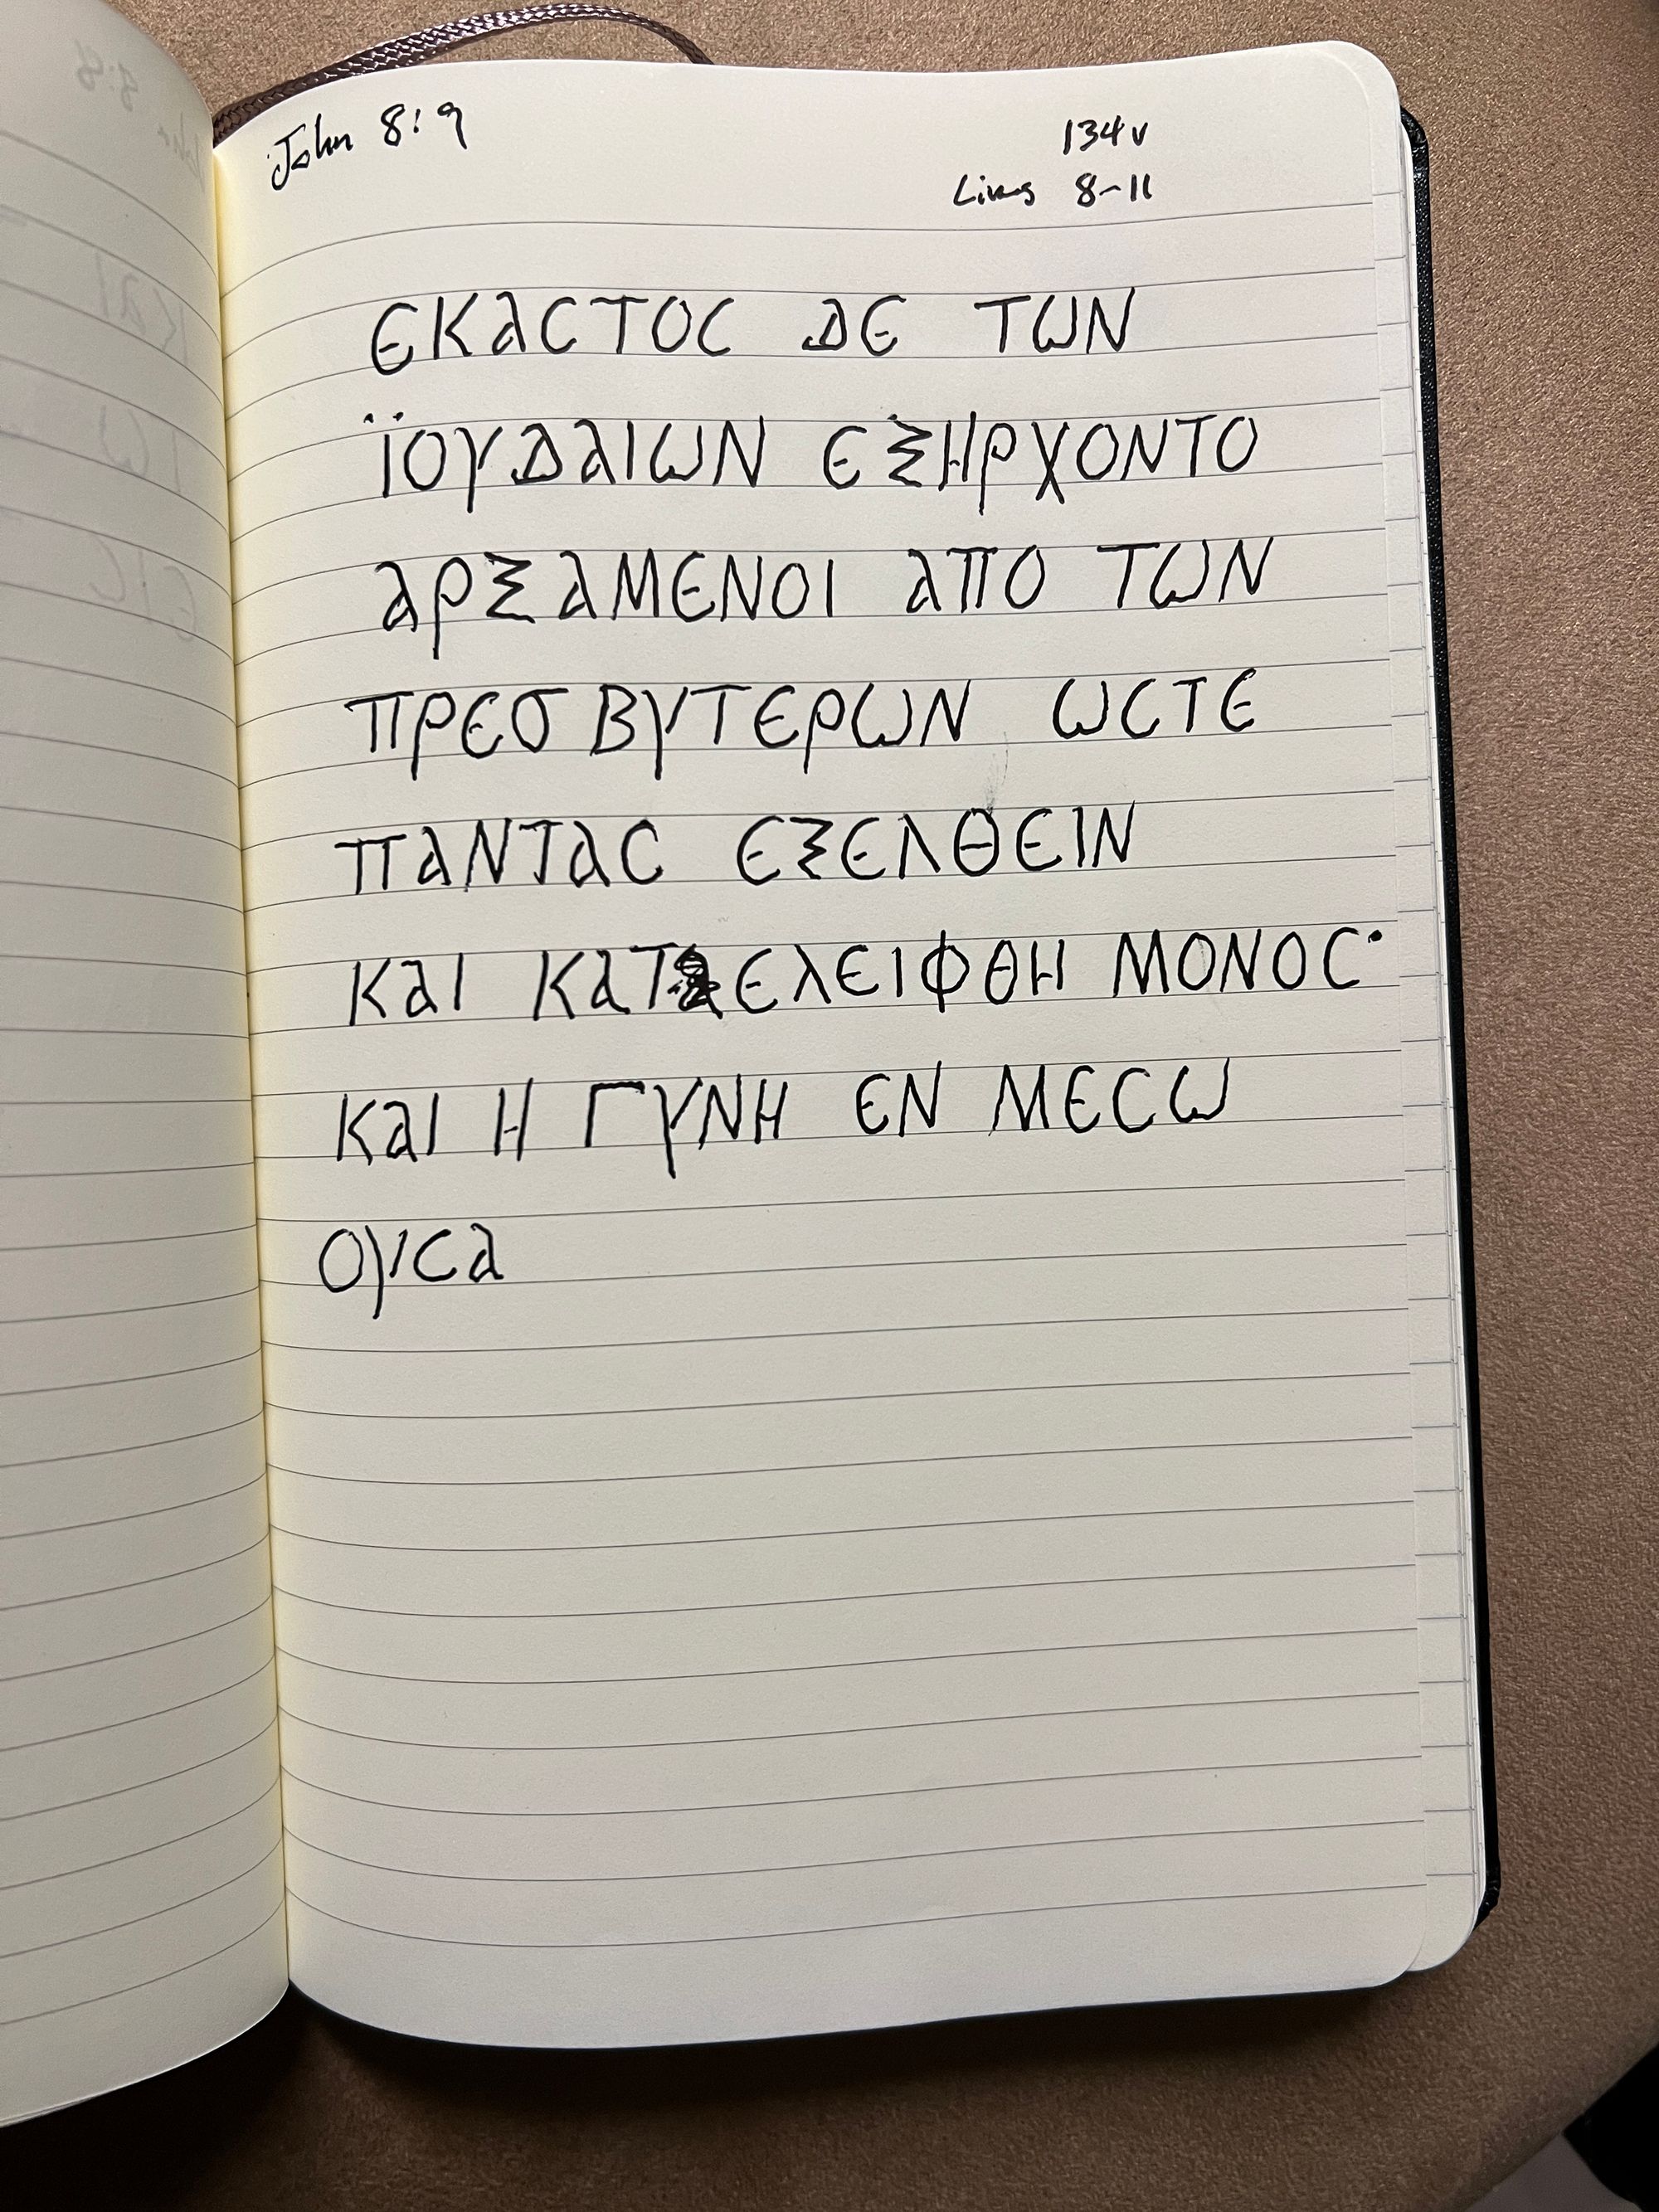 John 8:9
134v
Lines 8-11
ЄΚΑϹΤΟϹ ΔЄ ΤΩΝ
ΪΟΥΔΑΙΩΝ ЄΞΗΡΧΟΝΤΟ
ΑΡΞΑΜЄΝΟΙ ΑΠΟ ΤΩΝ
ΠΡЄσΒΥΤЄΡΩΝ ΩϹΤЄ
ΠΑΝΤΑϹ ЄΞЄΛΘЄΙΝ
ΚΑΙ ΚΑΤЄΛЄΙΦΘΗ ΜΟΝΟϹ·
ΚΑΙ Η ΓΥΝΗ ЄΝ ΜЄϹΩ
ΟΥϹΑ